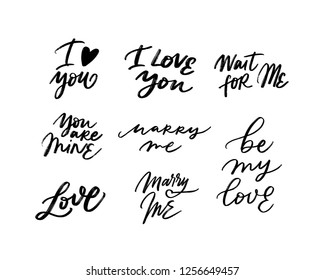 I ♥
you
I LOVE
You
Wait
for ME
You
are
MINE
marry
me
be
my
love
Love
Marry
ME
shutterstock.com · 1256649457